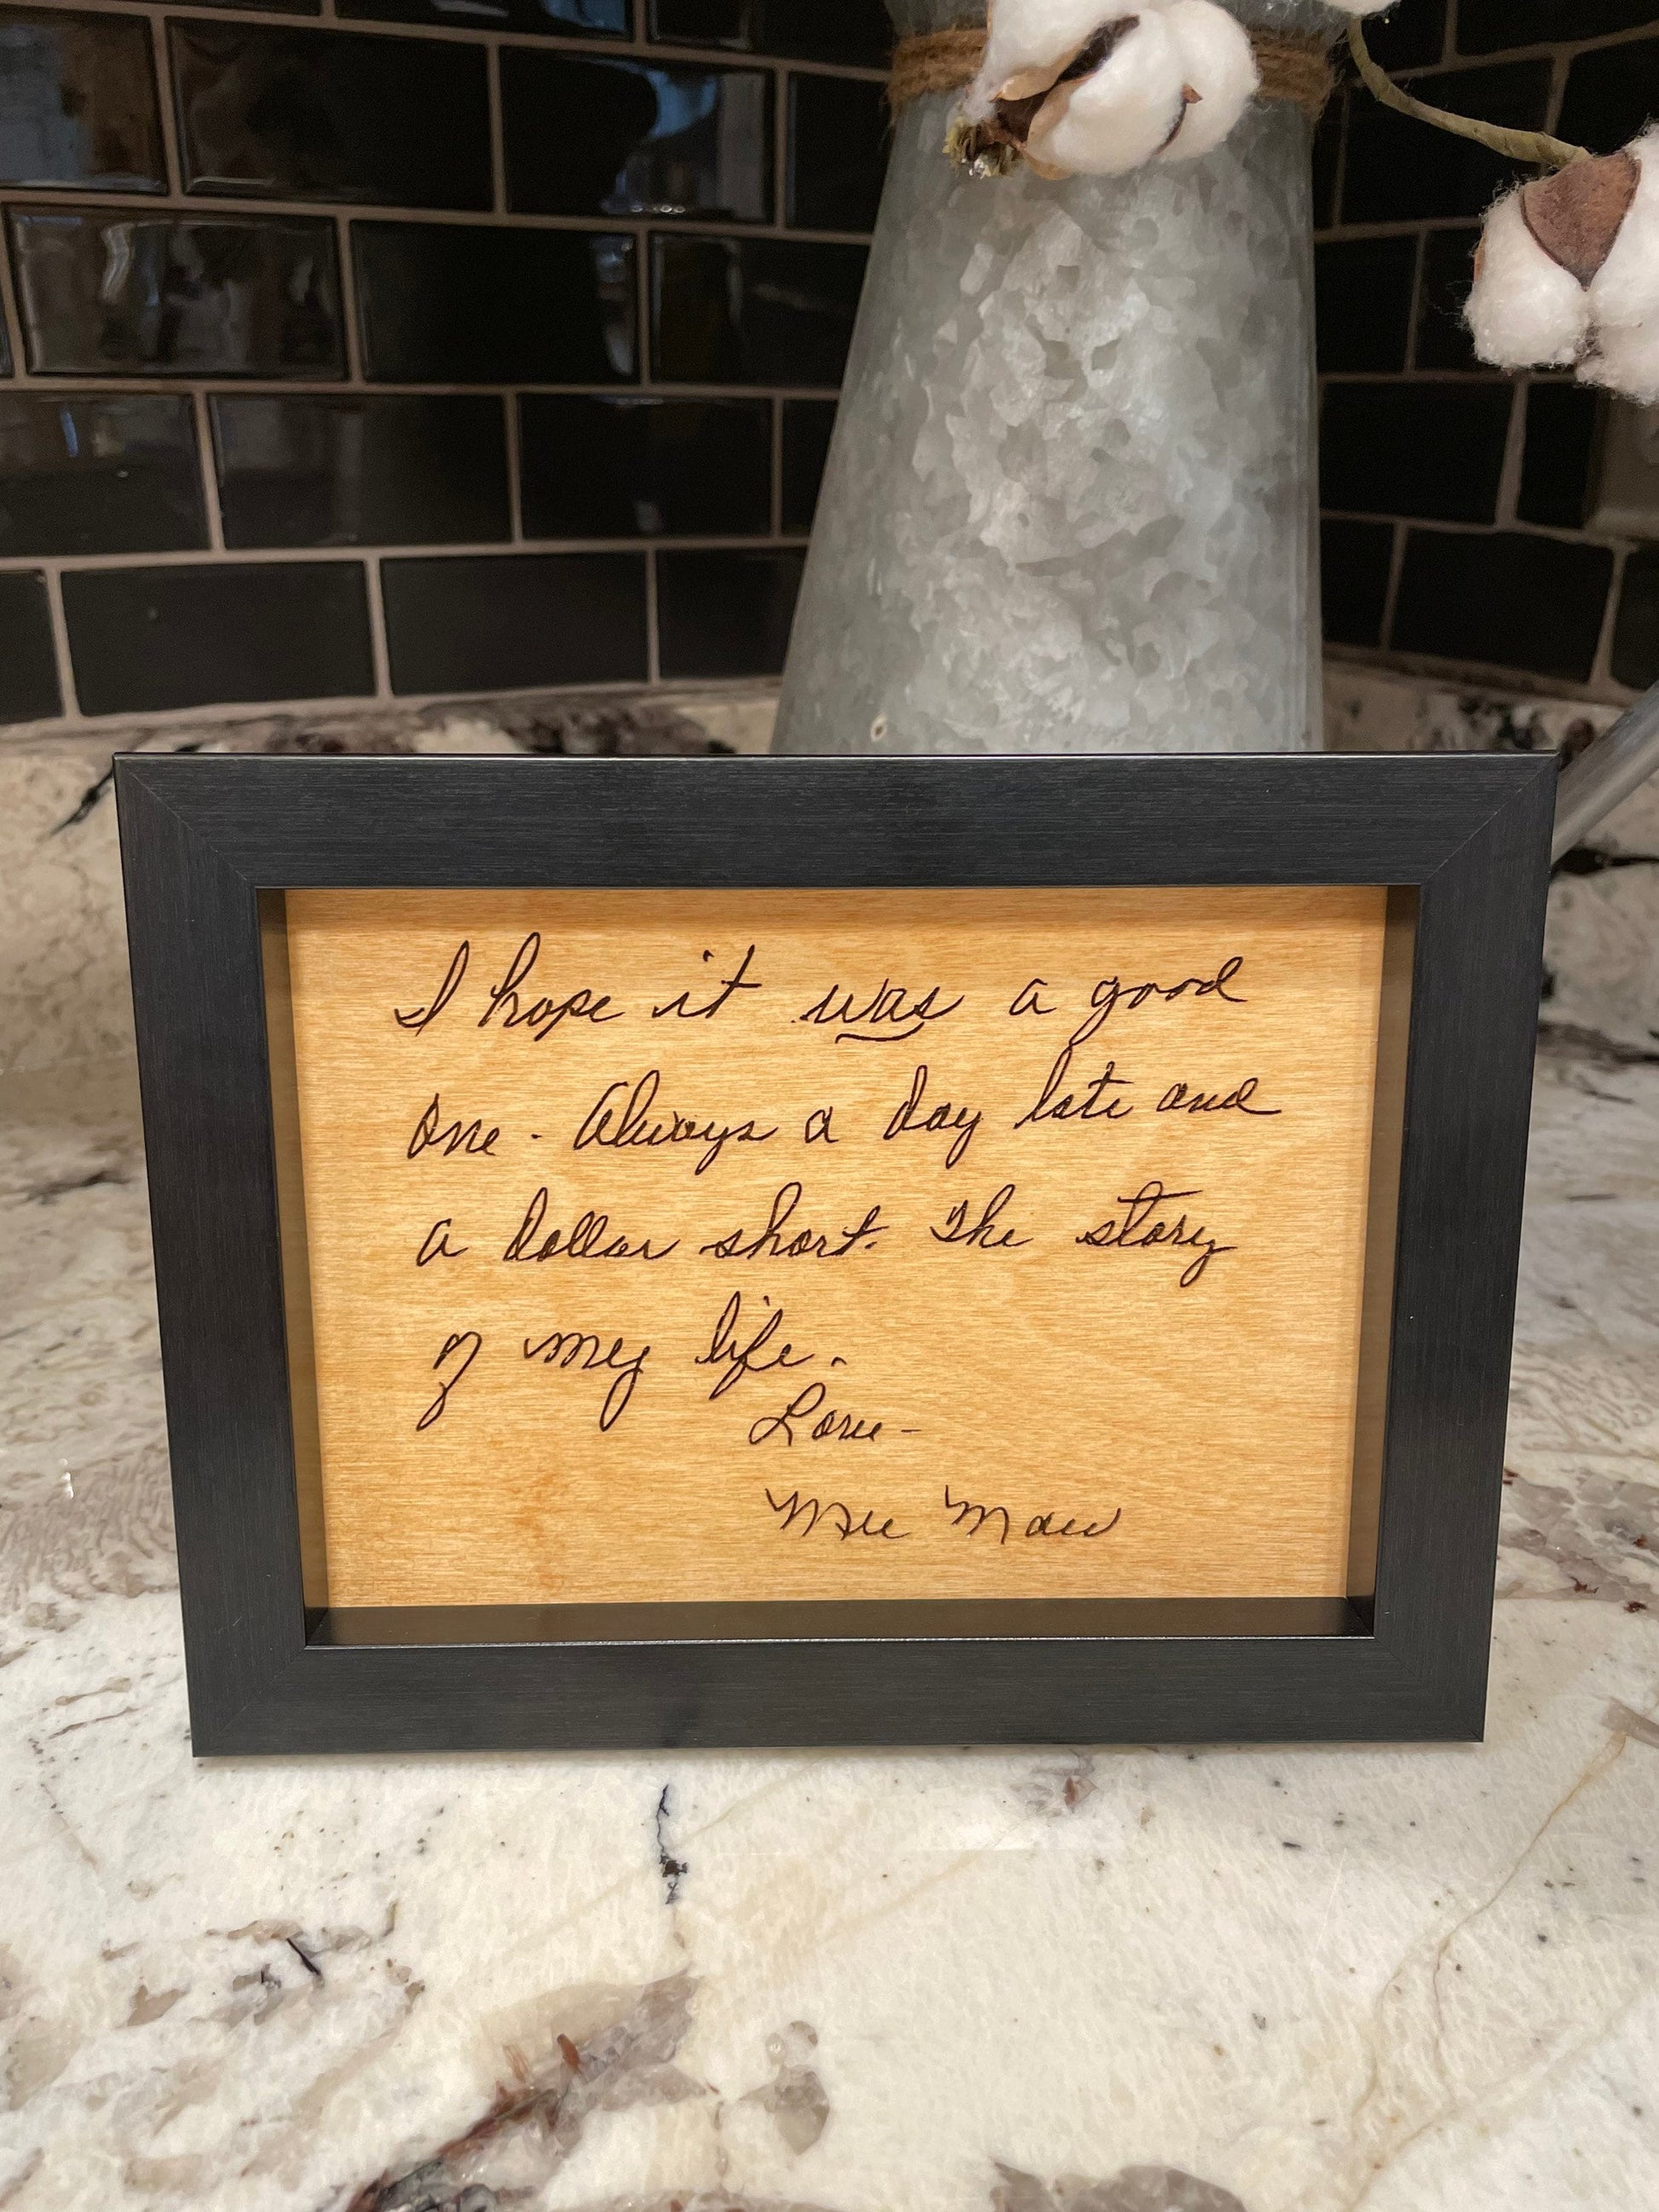 I hope it was a good
one. Always a day late and
a dollar short. The story
of my life.
Love -
Mee Maw